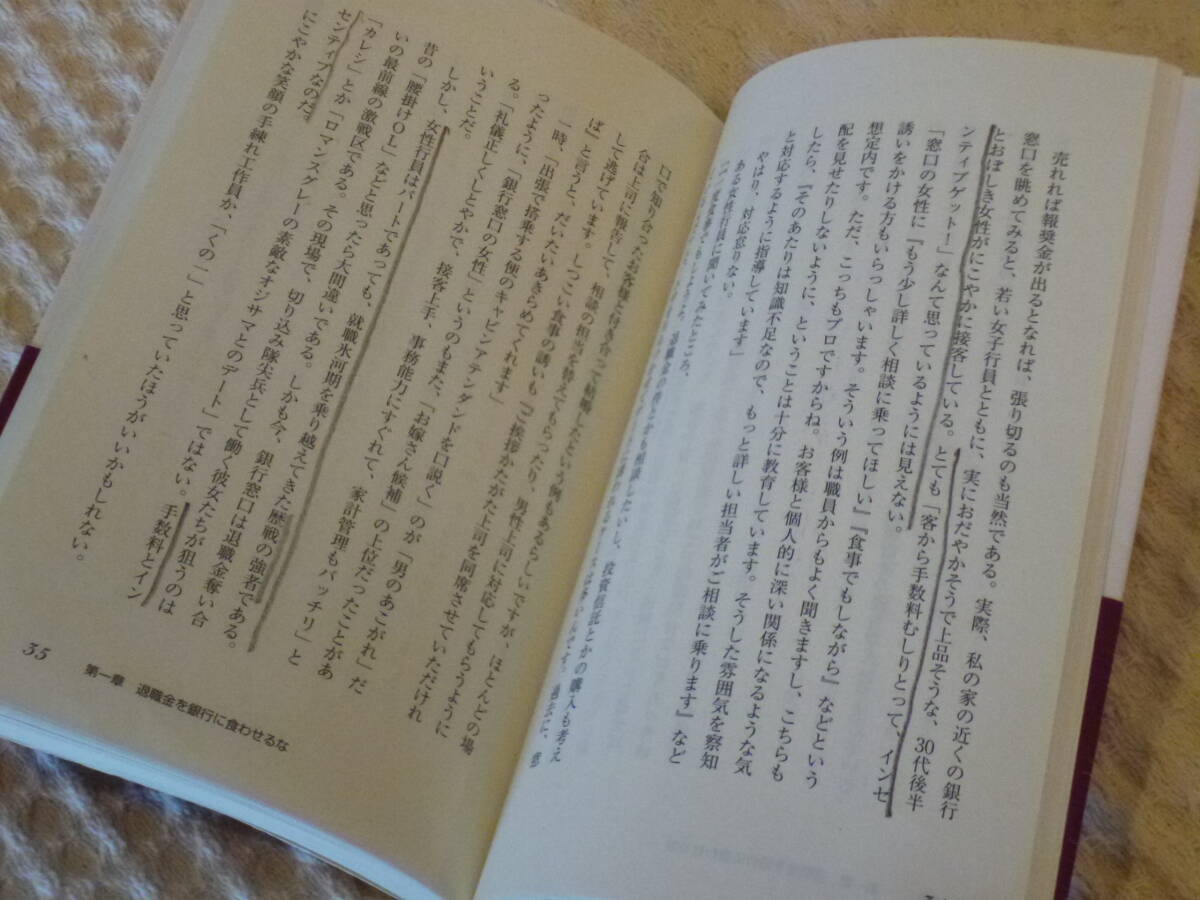 売れれば報奨金が出るとなれば、張り切るのも当然である。実際、私の家の近くの銀行
窓口を眺めてみると、若い女子行員とともに、実におだやかそうで上品そうな、30代後半
とおぼしき女性がにこやかに接客している。とても「客から手数料むしりとって、インセ
ンティブゲット！」なんて思っているようには見えない。
「窓口の女性に『もう少し詳しく相談に乗ってほしい』『食事でもしながら』などという
誘いをかける方もいらっしゃいます。そういう例は職員からもよく聞きますし、こちらも
想定内です。ただ、こっちもプロですからね。お客様と個人的に深い関係になるような気
配を見せたりしないように、ということは十分に教育しています。そうした雰囲気を察知
したら、『そのあたりは知識不足なので、もっと詳しい担当者がご相談に乗ります』など
と対応するように指導しています」
やはり、対応怠りない。
ある女性行員に聞いてみたところ、
退職金の件とかも相談したいし、投資信託とかの購入も考え
過去に、窓
口で知り合ったお客様と付き合って結婚したという例もあるらしいですが、ほとんどの場
合は上司に報告して、相談の担当を替えてもらったり、男性上司に対応してもらうように
して逃げています。しつこい食事の誘いも『ご挨拶かたがた上司を同席させていただけれ
ば』と言うと、だいたいあきらめてくれます」
一時、「出張で搭乗する便のキャビンアテンダントを口説く」のが「男のあこがれ」だ
ったように、「銀行窓口の女性」というのもまた、「お嫁さん候補」の上位だったことがあ
る。「礼儀正しくしとやかで、接客上手、事務能力にすぐれて、家計管理もバッチリ」と
いうことだ。
しかし、女性行員はパートであっても、就職氷河期を乗り越えてきた歴戦の強者である。
昔の「腰掛けOL」などと思ったら大間違いである。しかも今、銀行窓口は退職金奪い合
いの最前線の激戦区である。その現場で、切り込み隊尖兵として働く彼女たちが狙うのは
「カレシ」とか「ロマンスグレーの素敵なオジサマとのデート」ではない。手数料とイン
センティブなのだ。
にこやかな笑顔の手練れ工作員か、「くの一」と思っていたほうがいいかもしれない。
35
第一章 退職金を銀行に食わせるな